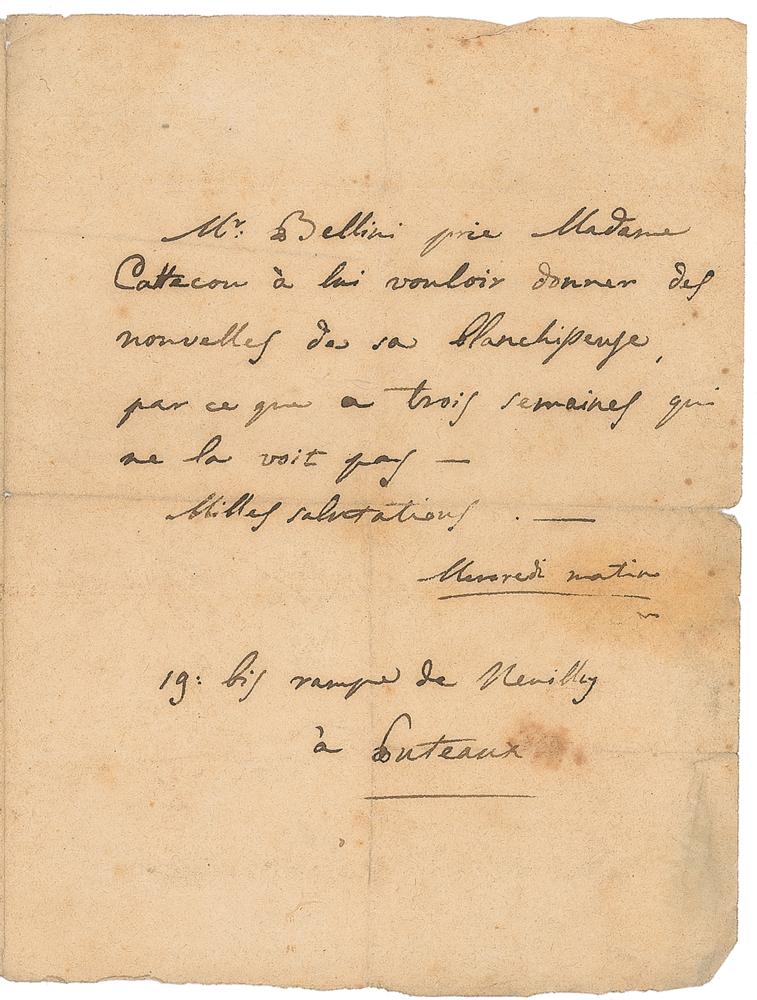 Mr: Bellini prie Madame
Cattecou à lui vouloir donner des
nouvelles de sa blanchisseuse,
par ce que a trois semaines qui
ne la voit pas —
Milles salutations . —
Mercredi matin
19: bis rampe de Neuilly
à Puteaux